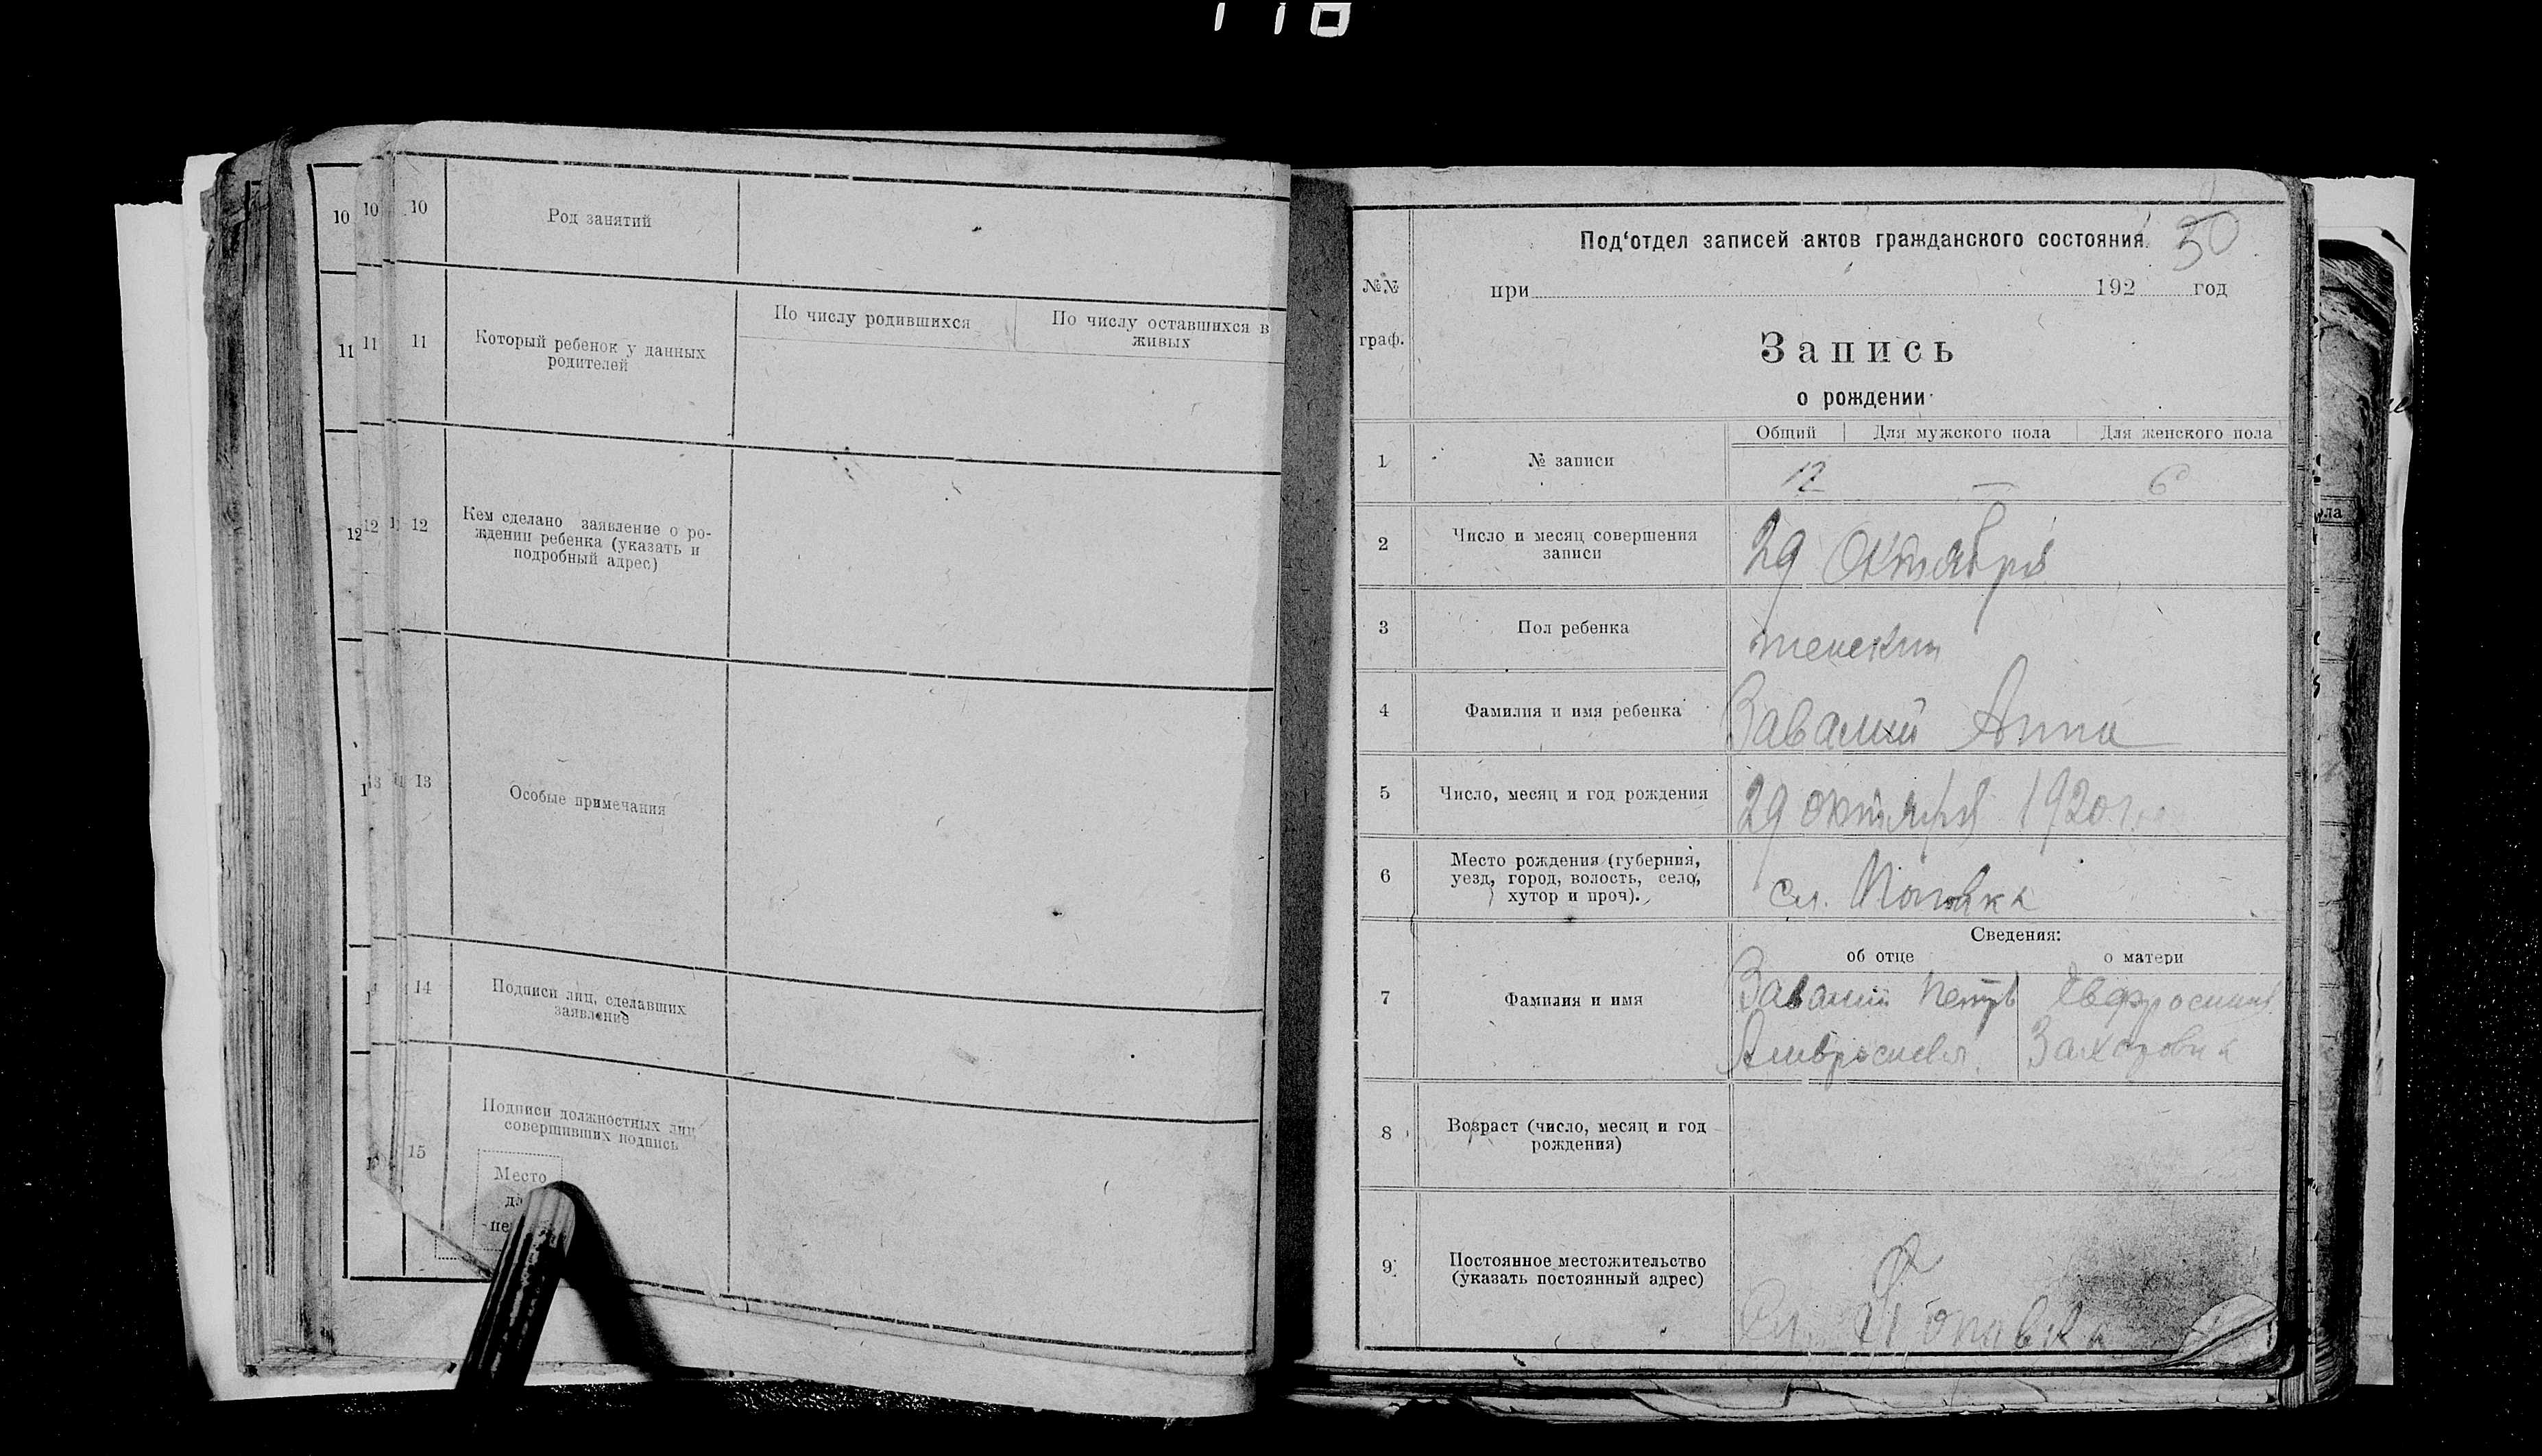 10 10 10 Род занятий
11 11 11 Который ребенок у данных
родителей
По числу родившихся
По числу оставшихся в
живых
12 12 1 12 Кем сделано заявление о ро-
ждении ребенка (указать и
подробный адрес)
1 13 13 Особые примечания
1 14 Подписи лиц, сделавших
заявление
15 Подписи должностных лиц
совершивших подпись
Место
50
Под‘отдел записей актов гражданского состояния.
№№
граф.
при 192 год
Запись
о рождении
Общий Для мужского пола Для женского пола
1 № записи 12 — 6
2 Число и месяц совершения
записи
29 Октября
3 Пол ребенка женский
4 Фамилия и имя ребенка Завалий Анна
5 Число, месяц и год рождения 29 октября 1920 г.
6 Место рождения (губерния,
уезд, город, волость, село,
хутор и проч).
сл. Поповка
Сведения:
об отце о матери
7 Фамилия и имя Завалий Петр Евфросиния
Амвросиев Захаровна
8 Возраст (число, месяц и год
рождения)
9 Постоянное местожительство
(указать постоянный адрес)
Сл. Поповка